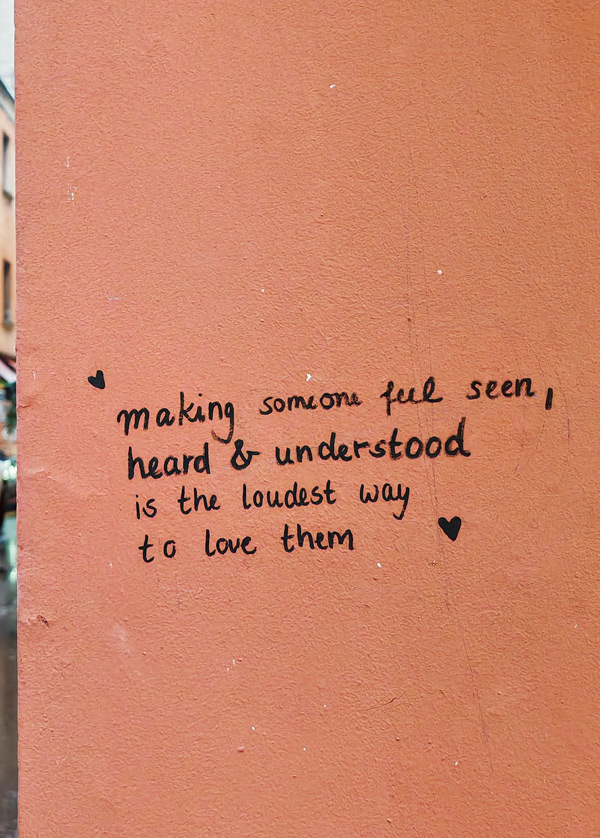 making someone feel seen,
heard & understood
is the loudest way
to love them